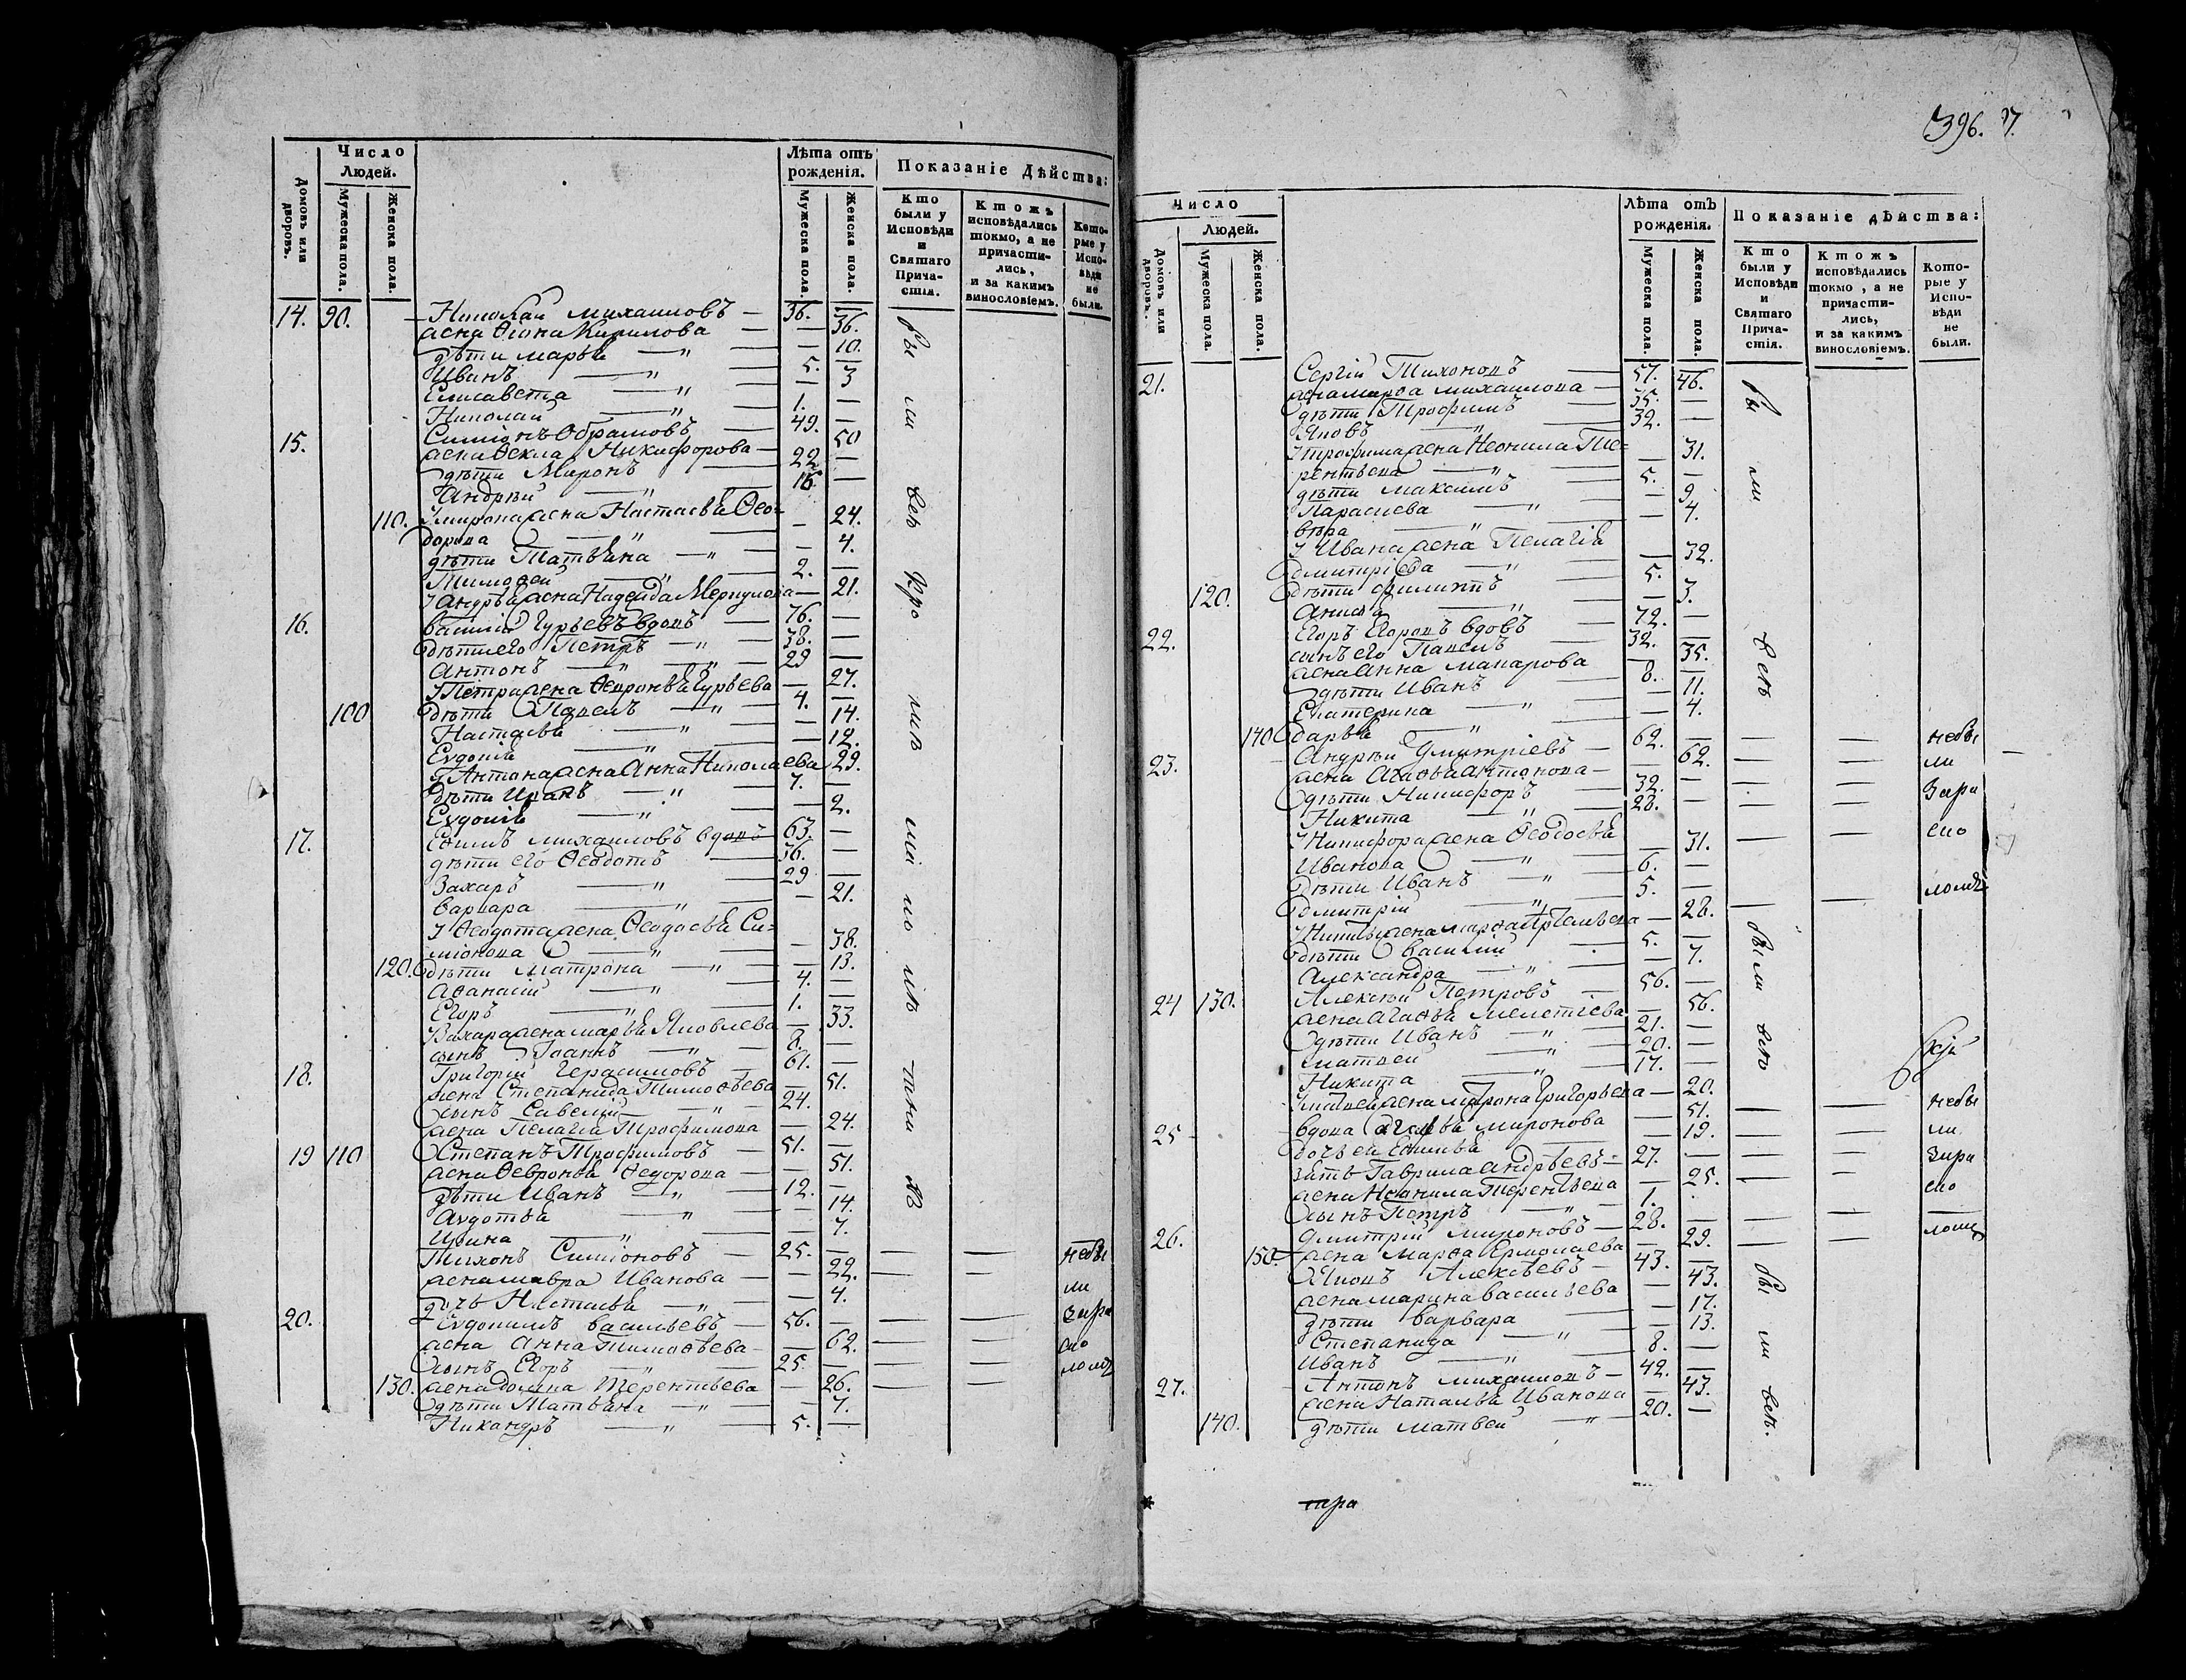 Число
Людей.
Домовъ или дворовъ.
Мужеска пола.
Женска пола.
Лѣта отъ
рожденія.
Мужеска пола.
Женска пола.
Показаніе Дѣйства:
Кто были у Исповѣди и Святаго Прича-стія.
Ктожъ исповѣдались токмо, а не причасти-лись, и за какимъ винословіемъ.
Кото-рые у Испо-вѣди не были.
14. 90. Николай михаиловъ — 36. —
жена Ѳіона Кирилова — — 36.
дѣти марья — „ — — 10.
Иванъ — „ — 5. —
Елисавета — „ — — 3
Николай — „ — 1. —
15. Симіонъ Абрамовъ — 49. —
жена Ѳекла Никифорова — 50
дѣти Миронъ — 22 —
Андрѣй — „ — 16. —
110. У мирона жена Настасья Ѳео=
дорова — „ — 24.
дѣти Татьяна — „ — — 4.
Тимоѳей — „ — 2. —
У Андрѣя жена Надежда — 21.
16. василій Гурьевъ вдовъ — 76. —
дѣти его Петръ — „ — 38. —
Антонъ — „ — 29 —
У Петра жена Ѳевронья Гурьева — 27.
100 дѣти Павелъ — „ — 4. —
Настасья — „ — — 14.
Евдокія — „ — — 12.
У Антона жена Анна Николаева 29.
дѣти Иванъ — „ — 7. —
Евдокія — „ — — 2.
17. Ефимъ михаиловъ вдовъ 63. —
дѣти его Ѳеодотъ — 36. —
Захаръ — „ — 29 —
варвара — „ — — 21.
У Ѳеодота жена Ѳеодосья Си=
міонова — „ — 38.
120. дѣти Матрона — „ — — 13.
Аѳанасій — „ — 4. —
Егоръ — „ — 1. —
У Захара жена марья Яковлева — 33.
сынъ Іоаннъ — „ — 8. —
18. Григорій Герасимовъ — 61. —
жена Степанида Тимоѳѣева — 51.
сынъ Савелій — „ — 24. —
жена Пелагія Трофимова — 24.
19 110 Степанъ Трофимовъ — 51. —
жена Ѳевронья Ѳедорова — — 51.
дѣти Иванъ — „ — 12. —
Авдотья — „ — — 14.
Ирина — „ — — 7.
Тихонъ Симіоновъ — 25. — — — небы
жена мавра Иванова — — 22. — — ли
дочь Настасья — „ — — 4.
20. Евдокимъ васильевъ — 56. — — — занра
жена Анна Тимоѳѣева — — 62. — — сло
сынъ Егоръ — „ — 25. — — — ломъ
130. жена домна Терентьева — 26. — —
дѣти Татьяна — „ — — 7.
Никандръ — „ — 5. —
бы ли всѣ
396. 7.
Число
Людей.
Домовъ или дворовъ.
Мужеска пола.
Женска пола.
Лѣта отъ
рожденія.
Мужеска пола.
Женска пола.
Показаніе дѣйства:
Кто были у Исповѣди и Святаго Прича-стія.
Ктожъ исповѣдались токмо, а не причасти-лись, и за какимъ винословіемъ.
Кото-рые у Испо-вѣди не были.
21. Сергій Тихоновъ — 57. —
жена марѳа михаилова — 46.
дѣти Трофимъ — 35. —
Яковъ — „ — 32. —
У трофима жена Неонила Те=
рентьева — „ — 31.
дѣти максимъ — 5. —
Параскева — „ — — 9
вѣра — „ — — 4.
У Ивана жена Пелагія
дмитріева — „ — 32.
120. дѣти филипъ — 5. —
Анисья — „ — — 3.
22. Егоръ Егоровъ вдовъ — 72. —
сынъ его Павелъ — 32. —
жена Анна макарова — 35.
дѣти Иванъ — 8. —
Екатерина — „ — — 11.
140 дарья — „ — — 4.
23. Андрѣй Дмитріевъ — 62. — — — небы
жена Агаѳья Антонова — 62. — — ли
дѣти Никифоръ — 32. — — — занра
Никита — „ — 28. — —
У Никифора жена Ѳеодосья — сло
Иванова — „ — 31. — —
дѣти Иванъ — „ — 6. —
дмитрій — „ — 5. — ломъ
У Никиты жена марѳа Артемьева — 28. — —
дѣти василій — 5. —
Александра — „ — — 7.
24 130. Алексѣй Петровъ — 56. —
жена Агаѳья мелетіева 56.
дѣти Иванъ — „ — 21. —
матвей — „ — 20. —
Никита — „ — 17. —
У матвея жена матрона Григорьева — 20.
25 вдова Агаѳья миронова — 51. — — небы
дочь ей Ефимья — 19. — — ли
зять Гаврила Андрѣевъ — 27. — — — занра
жена Неонила Терентьева — 25. — сло
сынъ Петръ — „ — 1.
26. Дмитрій мироновъ — 28. — — — ломъ
150. жена марѳа Ермолаева — 29. — —
Яковъ Алексѣевъ — 43. —
жена марина васильева — 43.
дѣти варвара — — 17.
Степанида — „ — — 13.
Иванъ — „ — 8. —
27. Антонъ михаиловъ — 42. —
жена Наталья Иванова — 43.
140. дѣти матвей — „ — 20. —
бы ли всѣ
были всѣ
бы ли всѣ.